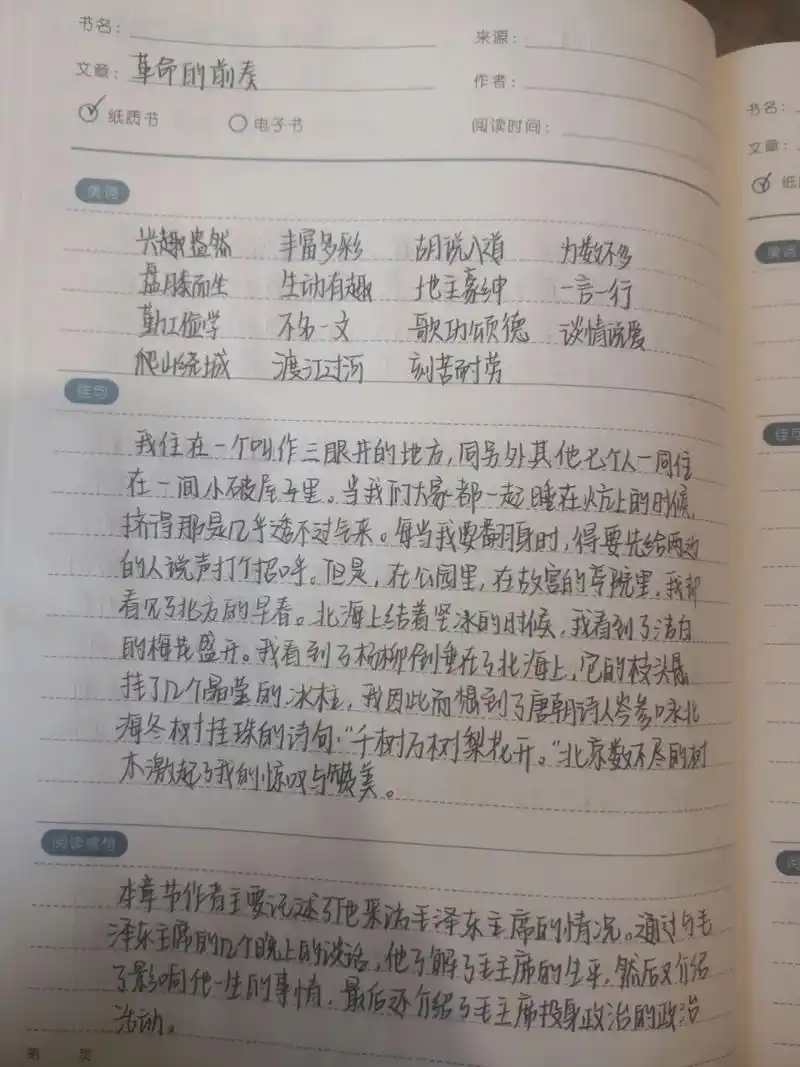 书名：
来源：
文章：革命的前奏
作者：
纸质书 电子书
阅读时间：
美词
兴趣盎然 丰富多彩 胡说八道 为数不多
盘膝而坐 生动有趣 地主豪绅 一言一行
勤工俭学 不名一文 歌功颂德 谈情说爱
爬山绕城 渡江过河 刻苦耐劳
佳句
我住在一个叫作三眼井的地方，同另外其他七个人一同住
在一间小破屋子里。当我们大家都一起睡在火炕上的时候，
挤得那是几乎透不过气来。每当我要翻身时，得要先给两边
的人说声打个招呼。但是，在公园里，在故宫的寺院里，我却
看见了北方的早春。北海上结着坚冰的时候，我看到了洁白
的梅花盛开。我看到了杨柳倒垂在了北海上，它的枝头悬
挂了几个晶莹的冰柱，我因此而想到了唐朝诗人岑参咏北
海冬树挂珠的诗句：“千树万树梨花开。”北京数不尽的树
木激起了我的惊叹与赞美。
阅读感悟
本章节作者主要记述了他采访毛泽东主席的情况。通过与毛
泽东主席的几个晚上的谈话，他了解了毛主席的生平，然后又介绍
了影响他一生的事情，最后还介绍了毛主席投身政治的政治
活动。
第 页
书名：
文章：
纸
美词
佳句
阅